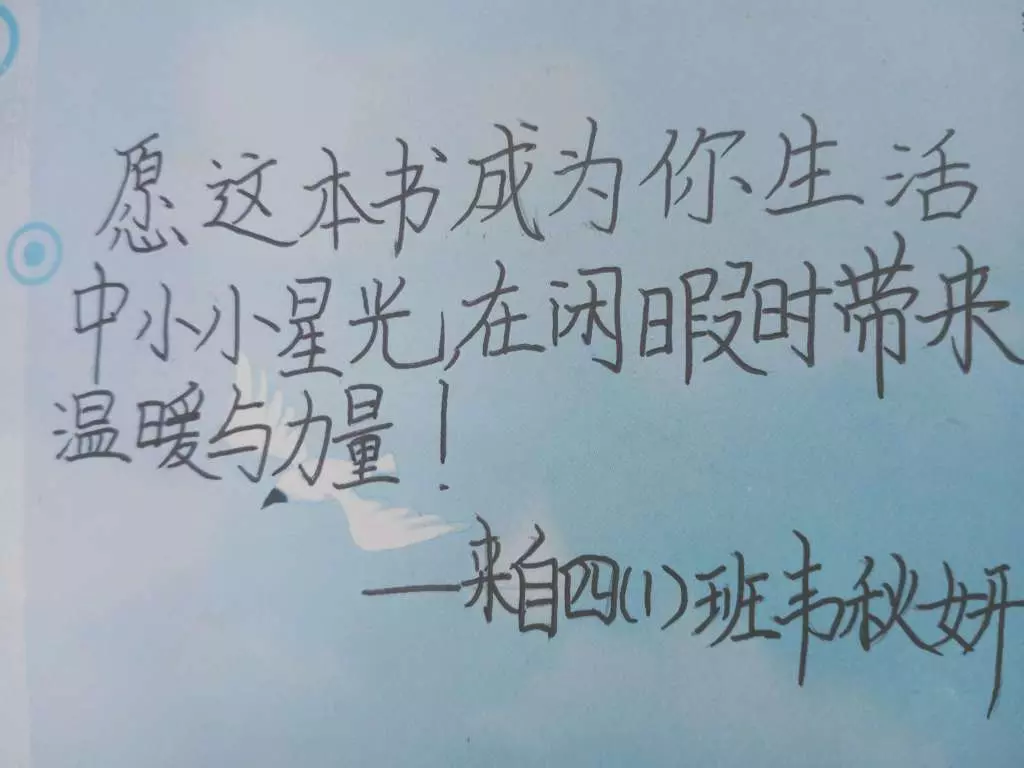 愿这本书成为你生活
中小小星光,在闲暇时带来
温暖与力量！
——来自四(1)班韦秋妍